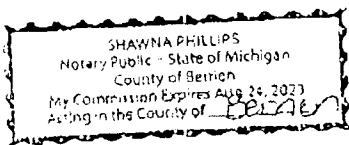 SHAWNA PHILLIPS
Notary Public - State of Michigan
County of Berrien
My Commission Expires Aug 24, 2023
Acting in the County of Berrien